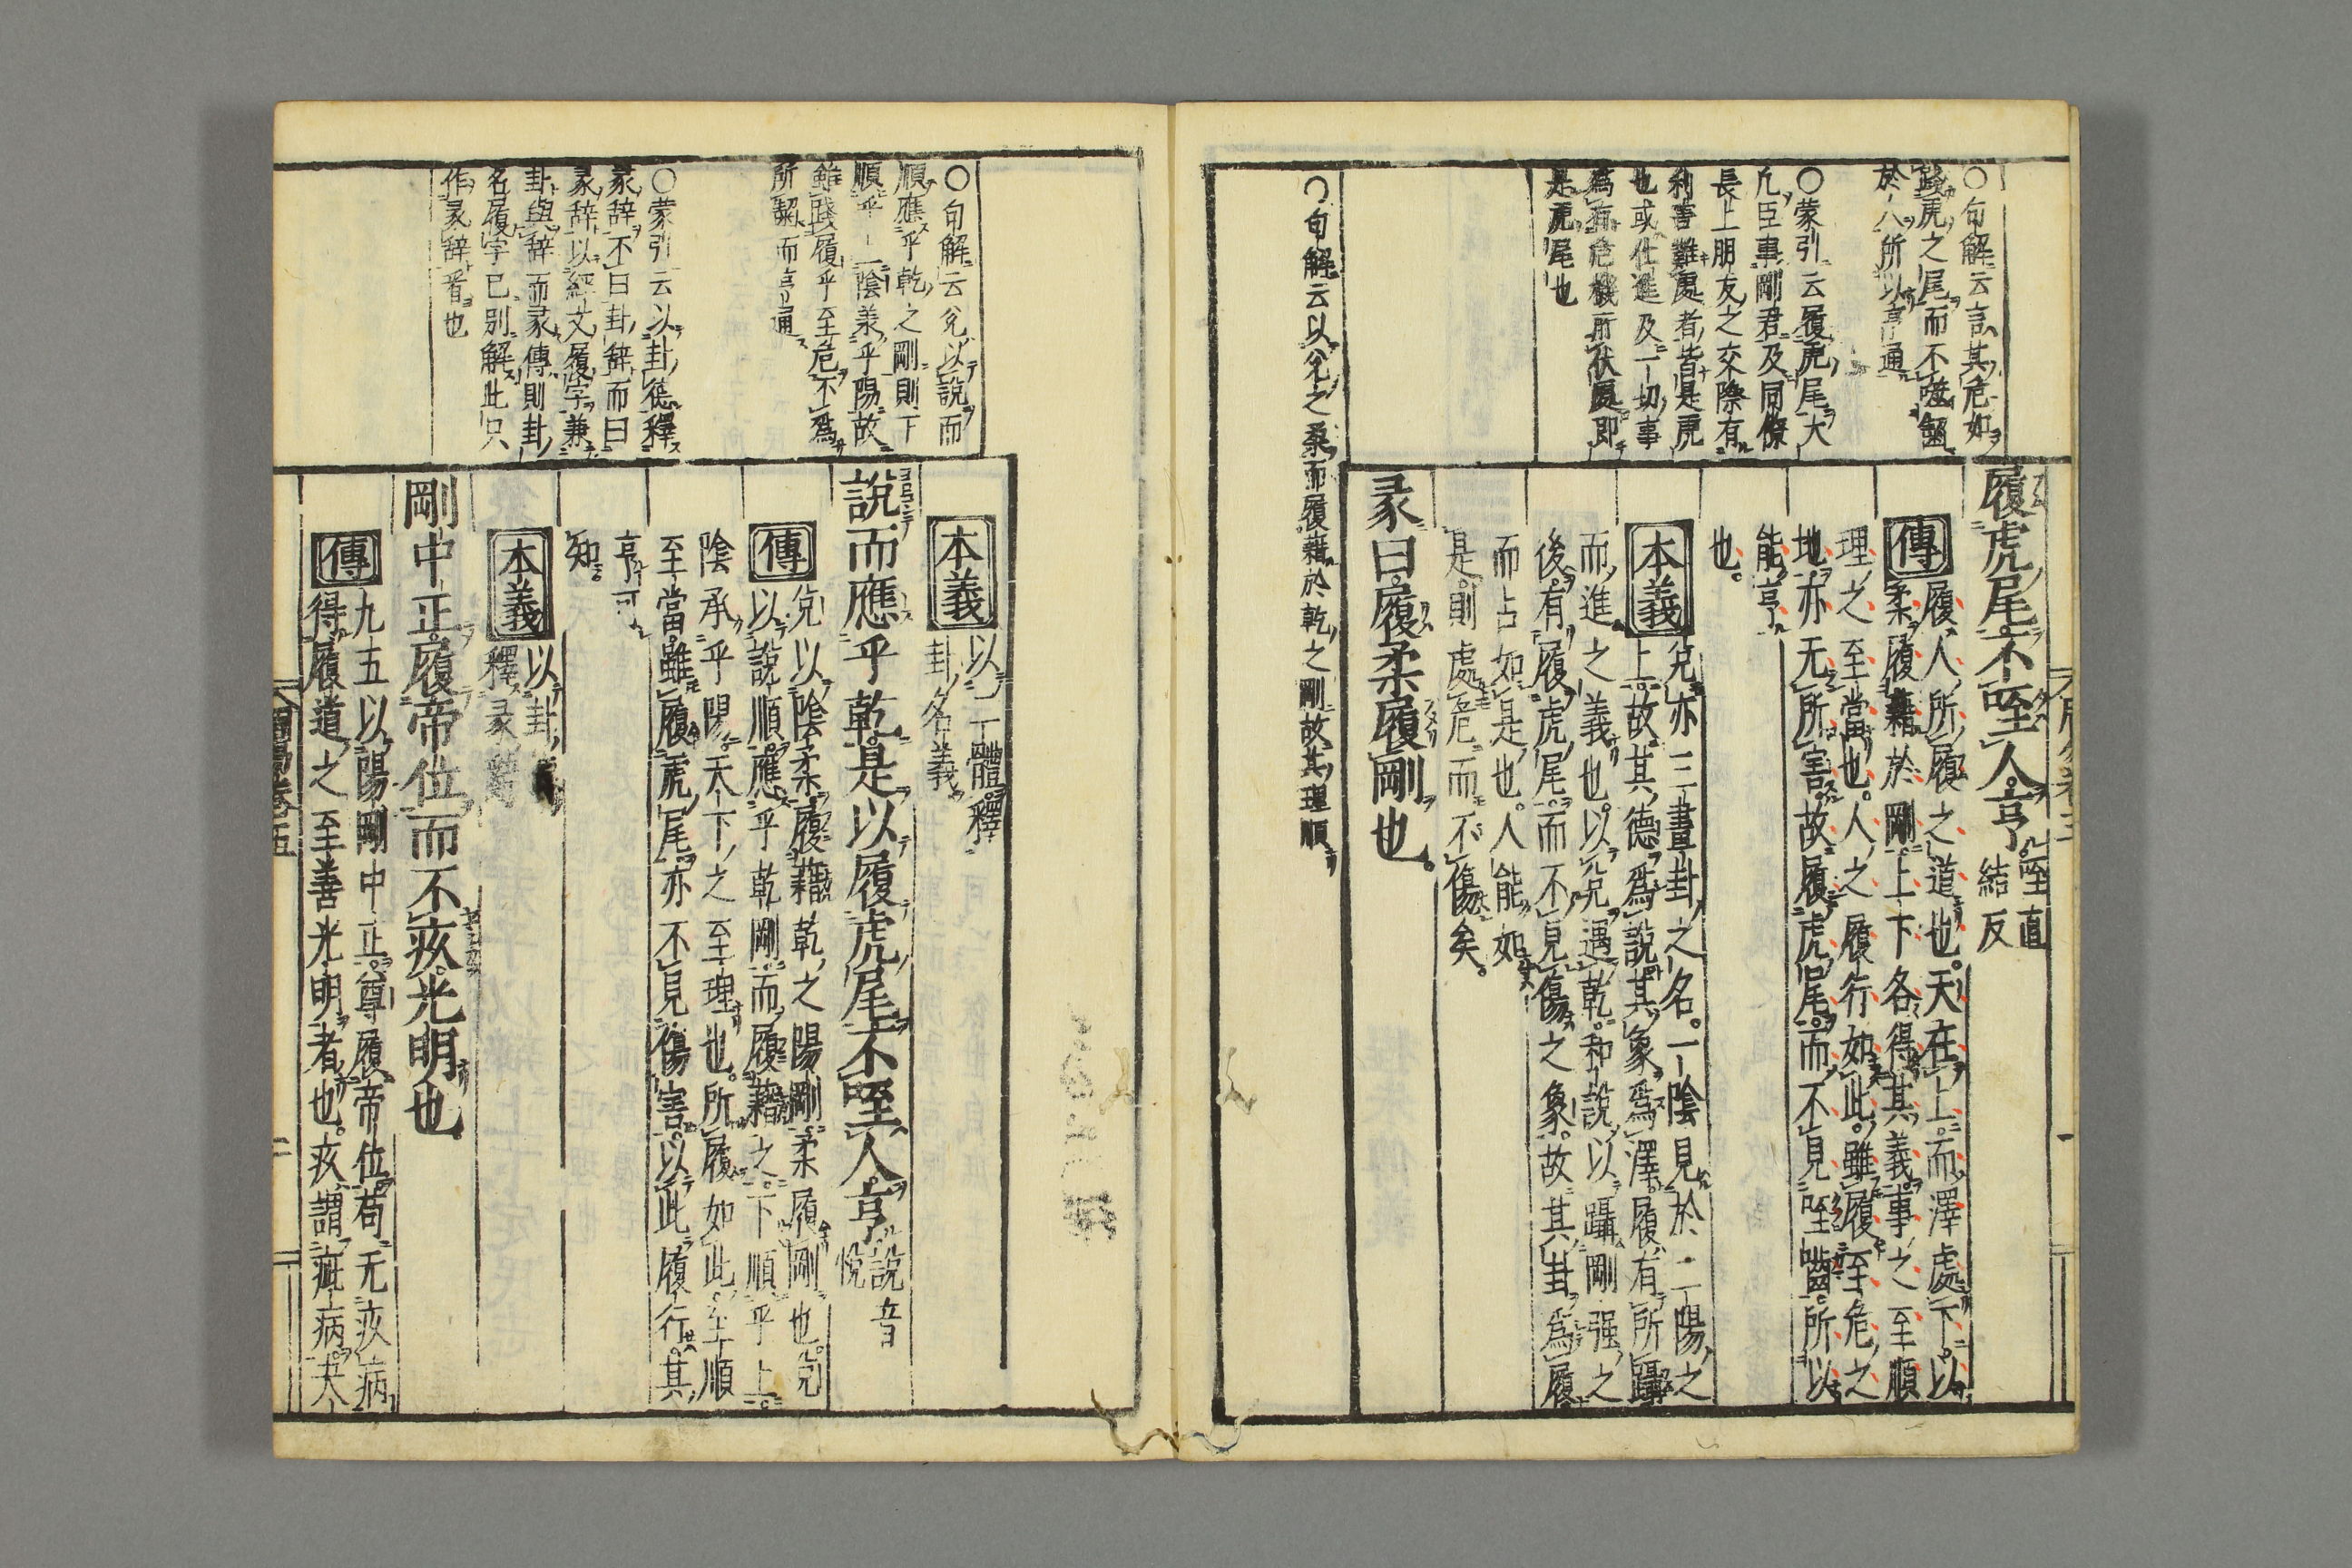 履虎尾不咥人亨咥直
結反
傳履人所履之道也天在上而澤處下以
柔履藉於剛上下各得其義事之至順
理之至當也人之履行如此雖履至危之
地亦无所害故履虎尾而不見咥嚙所以
能亨
也
本義兌亦三畫卦之名一陰見於二陽之
上故其德爲說其象爲澤履有所躡
而進之義也以兌遇乾和說以躡剛强之
後有履虎尾而不見傷之象故其卦爲履
而占如是也人能如
是則處危而不傷矣
彖曰履柔履剛也
〇句解云言其危如
踐虎之尾而不噬齧
於人所以亨通
〇蒙引云履虎尾大
凡臣事剛君及同僚
長上朋友之交際有
利害難處者皆是虎
也或仕進及一切事
爲有危機所伏處即
是虎尾也
〇句解云以兌之柔而履藉於乾之剛故其理順
本義以二體釋
卦名義
說而應乎乾是以履虎尾不咥人亨說音
悅
傳兌以陰柔履藉乾之陽剛柔履剛也兌
以說順應乎乾剛而履藉之下順乎上
陰承乎陽天下之至理也所履如此至順
至當雖履虎尾亦不見傷害以此履行其
亨可
知
本義以卦
釋彖辭
剛中正履帝位而不疚光明也
傳九五以陽剛中正尊履帝位苟无疚病
得履道之至善光明者也疚謂疵病夬
〇句解云兌以說而
順應乎乾之剛則下
順乎上陰兼乎陽故
雖踐履乎至危不爲
所齧而亨通
〇蒙引云以卦德釋
彖辞不曰卦辞而曰
彖辞以經文履字兼
卦與辞而彖傳則卦
名履字已別解此只
作彖辞看也